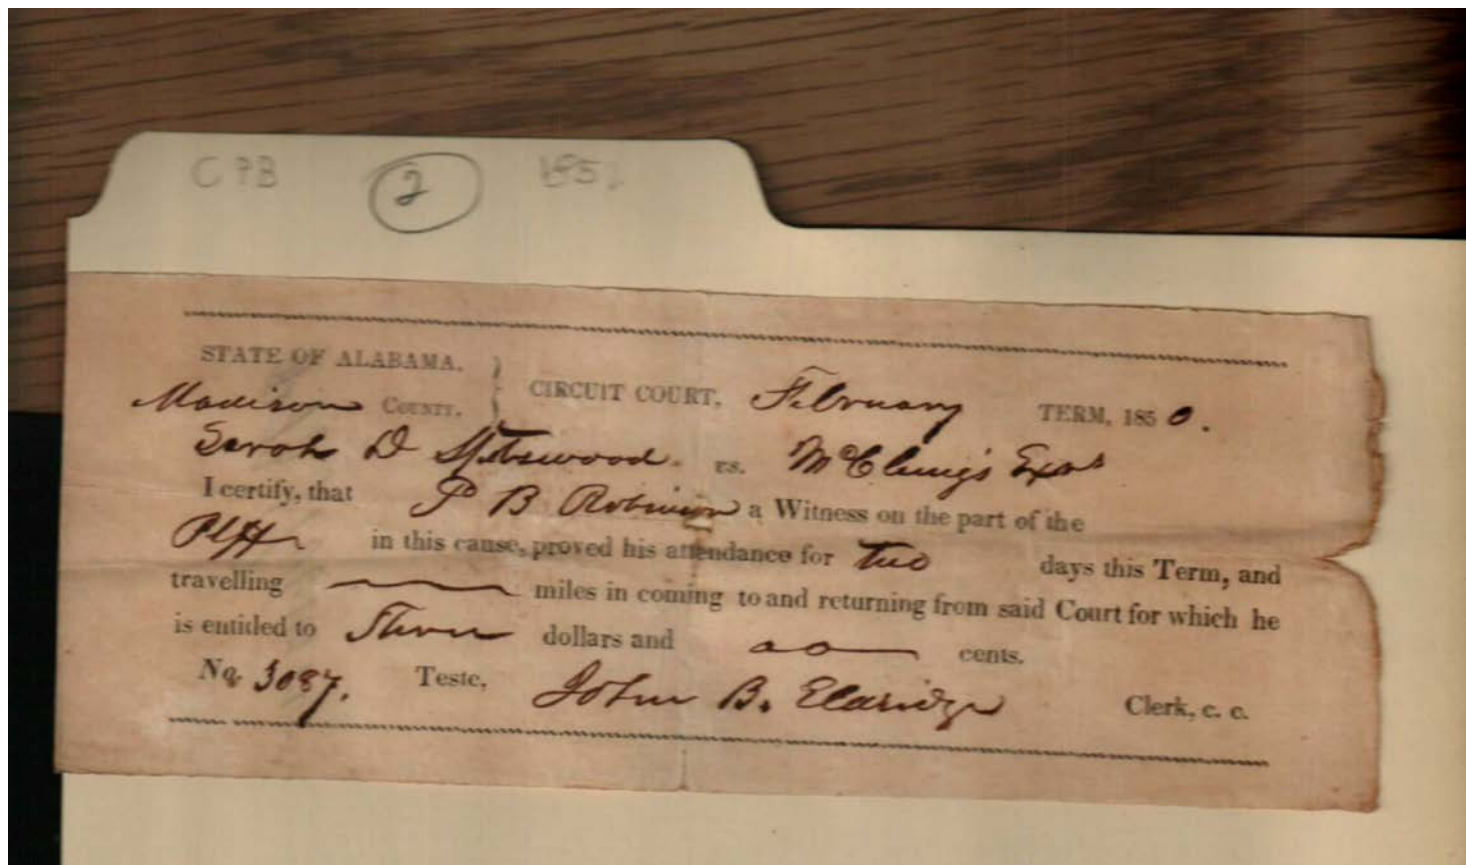 CPB 2 1851
STATE OF ALABAMA.
Madison COUNTY. } CIRCUIT COURT, February TERM, 1850.
Sarah D Spotswood. vs. McClung's Exrs
I certify, that P B Robinson a Witness on the part of the
Plff in this cause, proved his attendance for two days this Term, and
travelling — miles in coming to and returning from said Court for which he
is entitled to Three dollars and 00 cents.
No. 3087. Teste, John B. Eldridge Clerk, c. c.